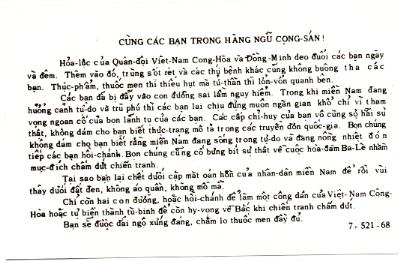 CÙNG CÁC BẠN TRONG HÀNG NGŨ CỘNG-SẢN !
Hỏa-lốc của Quân-đội Việt-Nam Cong-Hòa và Đồng-Minh deo đuổi các bạn ngày
và đêm. Thêm vào đó, trùng sốt rét và các thý bệnh khác cũng không buông tha các
bạn. Thực-phẩm, thuốc men thì thiếu hụt mà tử-thần thì lởn-vởn quanh bên.
Các bạn đã bị đẩy vào con đường sai lầm nguy hiểm. Trong khi miền Nam đang
hưởng cảnh tự-do và trù phú thì các bạn lại chịu đựng muôn ngàn khổ chỉ vì tham
vọng ngoan cố của bọn lãnh tụ của các bạn. Các cấp chỉ-huy của bạn vô cùng sợ hãi sự
thật, không dám cho bạn biết thực-trạng mô tả trong các truyền đơn quốc-gia. Bọn chúng
không dám cho bạn biết rằng miền Nam đang sống trong tự-do và đang nồng nhiệt đón
tiếp các bạn hồi-chánh. Bọn chúng cố bưng bít sự thật về cuộc hòa-đàm Ba-Lê nhằm
mục-đích chấm dứt chiến tranh.
Tại sao bạn lại chết dưới cặp mắt oán hờn của nhân-dân miền Nam để rồi vùi
thây dưới đất đen, không áo quần, không mồ mả.
Chỉ còn hai con đường, hoặc hồi-chánh để làm một công dân của Việt-Nam Cộng-
Hòa hoặc tự biến thành tù-binh để còn hy-vọng về Bắc khi chiến tranh chấm dứt.
Bạn sẽ được đãi ngộ xứng đáng, chăm lo thuốc men đầy đủ.
7. 521-68